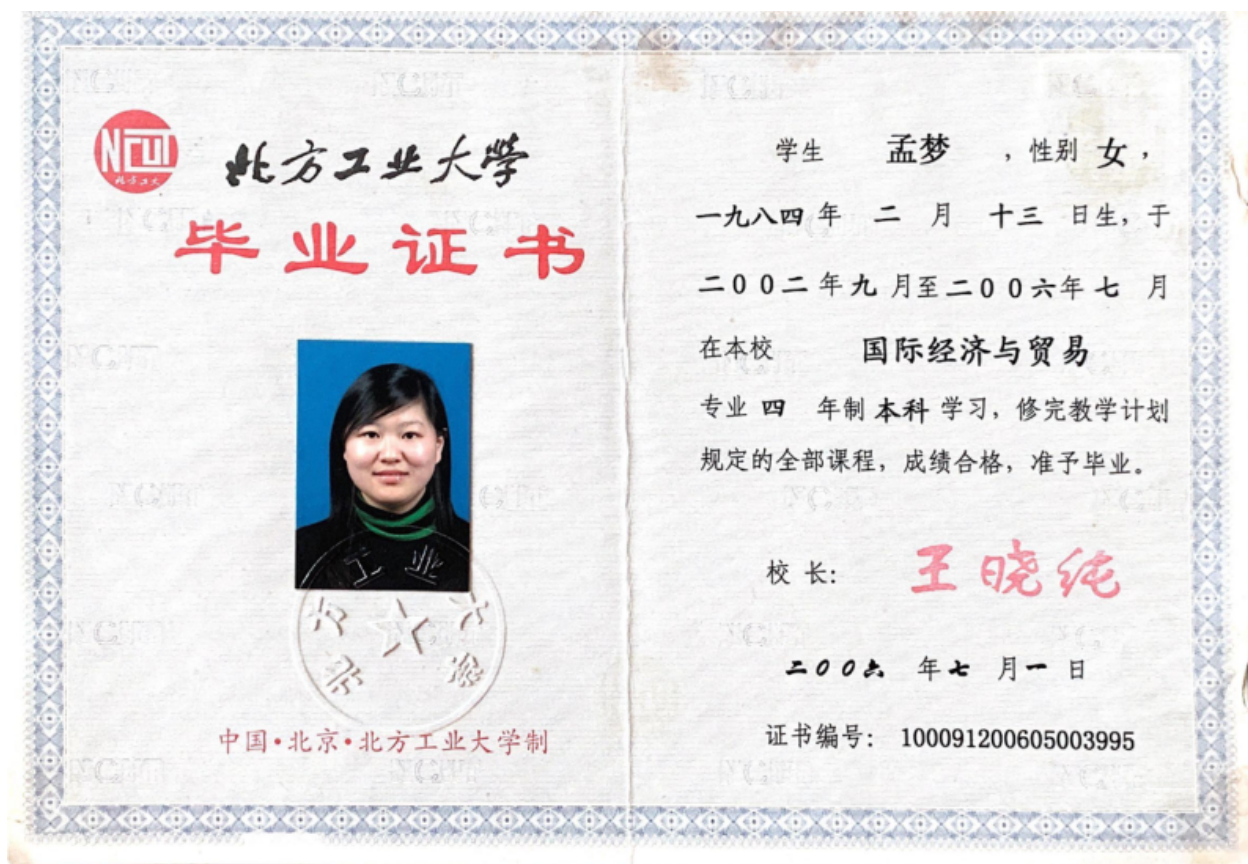 NCUT
北方工大
北方工业大学
毕业证书
北方工业大学
中国·北京·北方工业大学制
学生 孟梦 ，性别 女，
一九八四年 二 月 十三 日生，于
二00二年九月至二00六年七 月
在本校 国际经济与贸易
专业 四 年制 本科 学习，修完教学计划
规定的全部课程，成绩合格，准予毕业。
校 长： 王晓纯
二00六 年七 月一 日
证书编号： 100091200605003995